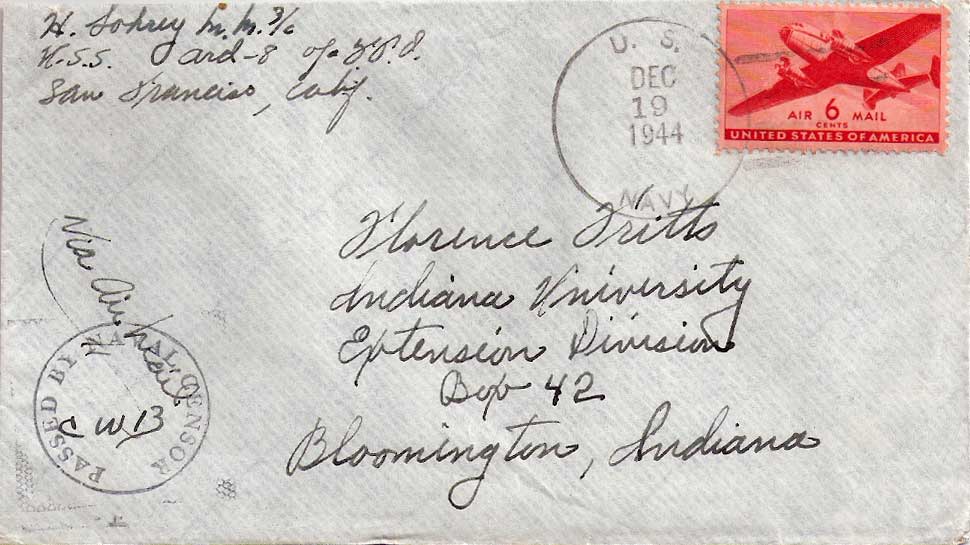 H. Sohrey M.M. 3/c
U.S.S. ard-8 % F.P.O.
San Francisco, Calif.
U. S.
DEC
19
1944
NAVY
AIR 6 MAIL
CENTS
UNITED STATES OF AMERICA
Florence Fritts
Indiana University
Extension Division
Box 42
Bloomington, Indiana
Via Air Mail
PASSED BY NAVAL CENSOR
CWB